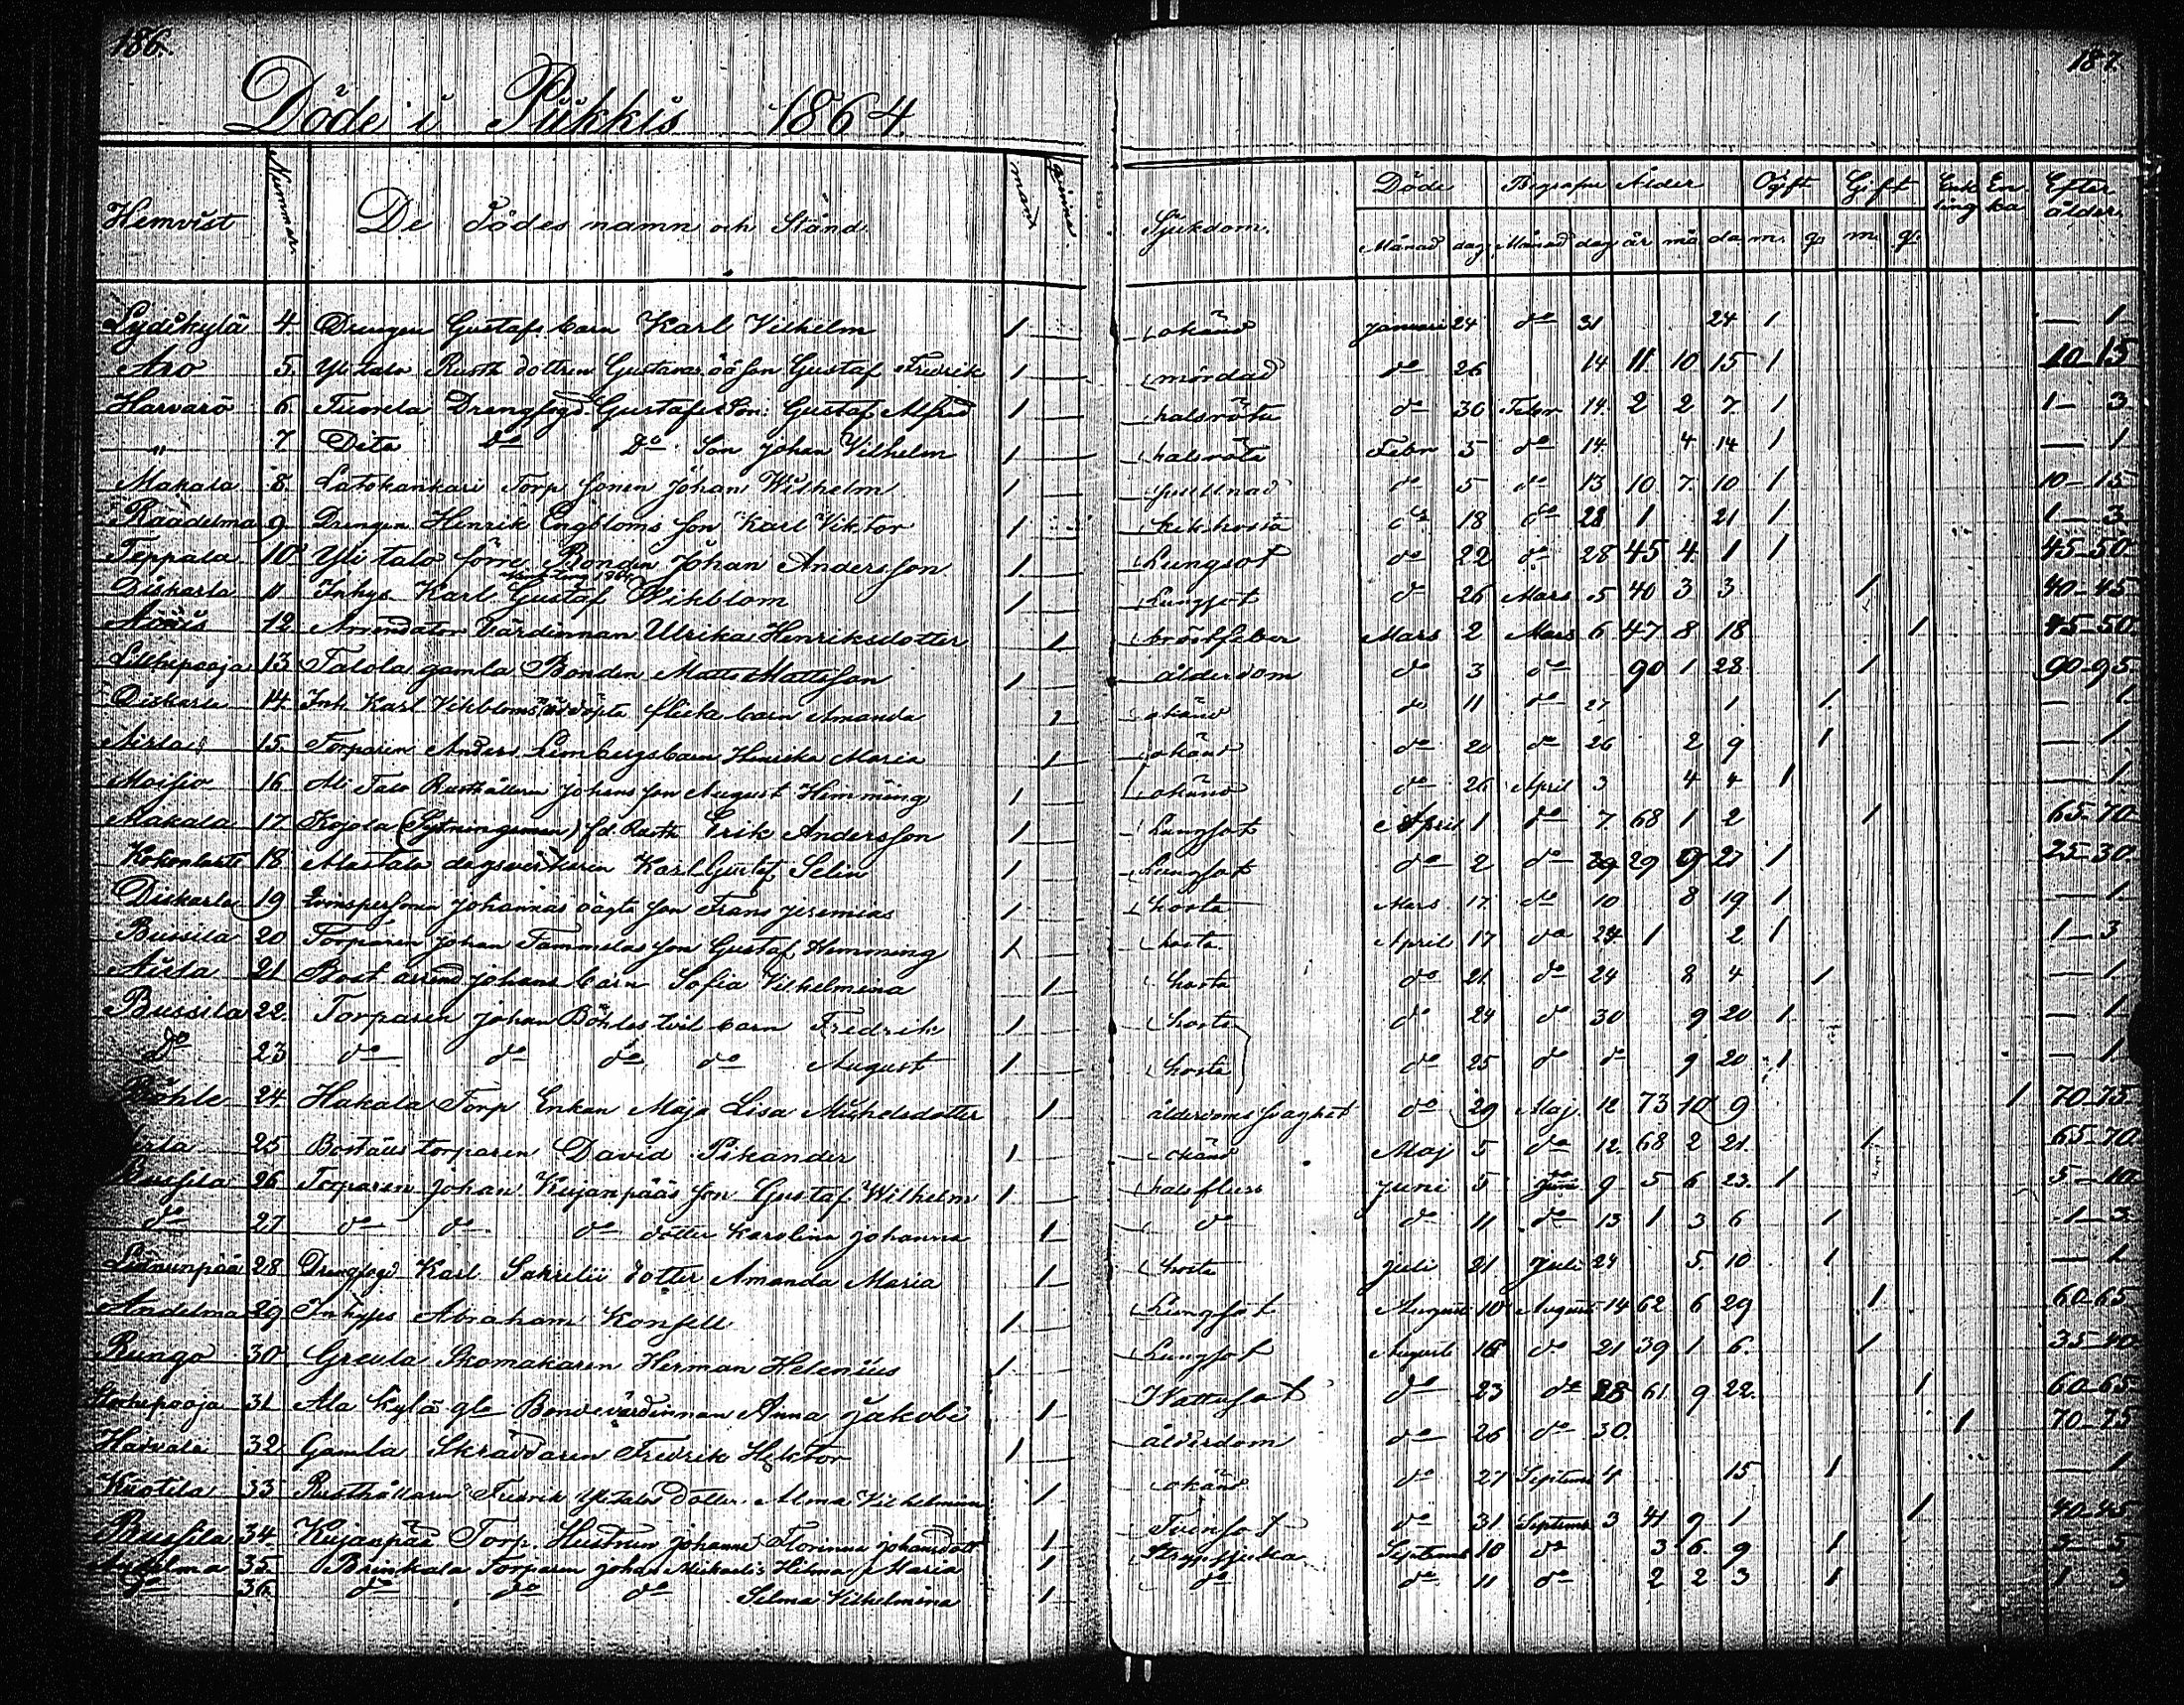 186.
187.
Döde i Pükkis 1864.
Hemvist Nummer De Dödes namn och Stånd. mank qvinna Sjukdom. Döde Begrafne Ålder Ogift Gift Enk ling En ka Efter ålder
Månad dag Månad dag år må da m. q. m. q.
Lydikylä 4 Drengen Gustafs barn Karl Vilhelm 1 okänd Januari 24 do 31 24 1 — 1
Aro 5. Ylitalo Rusth dottren Gustavas oä son Gustaf Fredrik 1 mördad do 26 14 11 10 15 1 10–15
Harvarö 6 Drengfogd Gustafs Son: Gustaf Alfred 1 halsröta do 30 Febr 14 2 2 7 1 1–3
" 7 Dito do Do Son Johan Vilhelm 1 halsröta Febr 5 do 14 4 14 1 — 1
Makala 8 Latokankari Torp sonen Johan Wilhelm 1 do 5 do 13 10 7 10 1 10–15
Raadelma 9 Drengen Henrik Engbloms son Karl Viktor 1 kikhosta do 18 do 28 1 21 1 1–3
Teppala 10 Yli talo förre Bonden Johan Andersson 1 Lungsot do 22 do 28 45 4 1 1 45–50
Diskarla 11 Inhys Karl Gustaf Vikblom 1 Lungsot do 26 Mars 5 40 3 3 1 40–45
12 Arrendator Värdinnan Ulrika Henriksdotter 1 bröstfeber Mars 2 Mars 6 47 8 18 1 45–50
13 Talola gamla Bonden Matts Mattsson 1 ålderdom do 3 do 90 1 28 1 90–95
Diskarla 14 Inh Karl Vikbloms odöpta flicka barn Amanda 1 okänd do 11 do 27 1 1 — 1
Airla 15. Torparen Anders Lembergs barn Henrika Maria 1 okänd do 20 do 26 2 9 1 — 1
Moisio 16 Ali Talo Rusthållaren Johans son August Hemming 1 okänd do 26 April 3 4 4 1 — 1
Makala 17 Kojola (Sytningsman) fd. Rusth Erik Andersson 1 Lungsot April 1 do 7 68 1 2 1 65–70
18 Alastalo dagsverkaren Karl Gustaf Selin 1 Lungsot do 2 do 29 9 27 1 25–30
Diskarla 19 qvinspersonen Johannas oägta son Frans Jeremias 1 hosta Mars 17 do 10 8 19 1 — 1
Bussila 20 Torparen Johan Tammelas son Gustaf Hemming 1 hosta April 17 do 24 1 2 1 1–3
Airla 21 Bost arrend Johans barn Sofia Vilhelmina 1 hosta do 21 do 24 8 4 1 — 1
Bussila 22. Torparen Johan Böhles tvil barn Fredrik 1 hosta do 24 do 30 9 20 1 — 1
Do 23 do do do do August 1 hosta do 25 do do 9 20 1 — 1
Böhle 24 Hakala Torp Enkan Maja Lisa Michelsdotter 1 ålderdoms svaghet do 29 Maj 12 73 10 9 1 70–75
25 Boställs torparen David Pikander 1 okänd Maj 5 do 12 68 2 21 1 65–70
Bussila 26 Torparen Johan Kujanpääs son Gustaf Wilhelm 1 halsfluss Juni 5 Juni 9 5 6 23 1 5–10
do 27 do do do dotter Karolina Johanna 1 do do 11 do 13 1 3 6 1 1–3
28 Drengfogd Karl Sakrelii dotter Amanda Maria 1 hosta Juli 21 Juli 24 5 10 1 — 1
Andelma 29 Inhyses Abraham Konsell 1 Lungsot August 10 August 14 62 6 29 1 60–65
Rungo 30 Greula Skomakaren Herman Helenius 1 Lungsot August 16 do 21 39 1 6 1 35–40
31 Ala Kylä gla Bondevärdinnan Anna Jakobi 1 Wattusot do 23 do 28 61 9 22 1 60–65
Harvala 32 Gamla Skräddaren Fredrik Hektor 1 ålderdom do 26 do 30 1 70–75
Kuotila 33 Rusthållaren Fredrik Ylitalos dotter Alma Vilhelmina 1 okänd do 27 Septem 4 15 1 — 1
Bussila 34. Kujanpää Torp. Hustrun Johanna Florinna Johansdott 1 Tvinsot do 31 Septem 3 41 9 1 1 40–45
35. Brinkala Torparen Johan Mickaelis Hilma Maria 1 Strypsjuka Septemb 10 do 3 6 9 1 3–5
do 36. do do do Selma Vilhelmina 1 do do 11 do 2 2 3 1 1–3